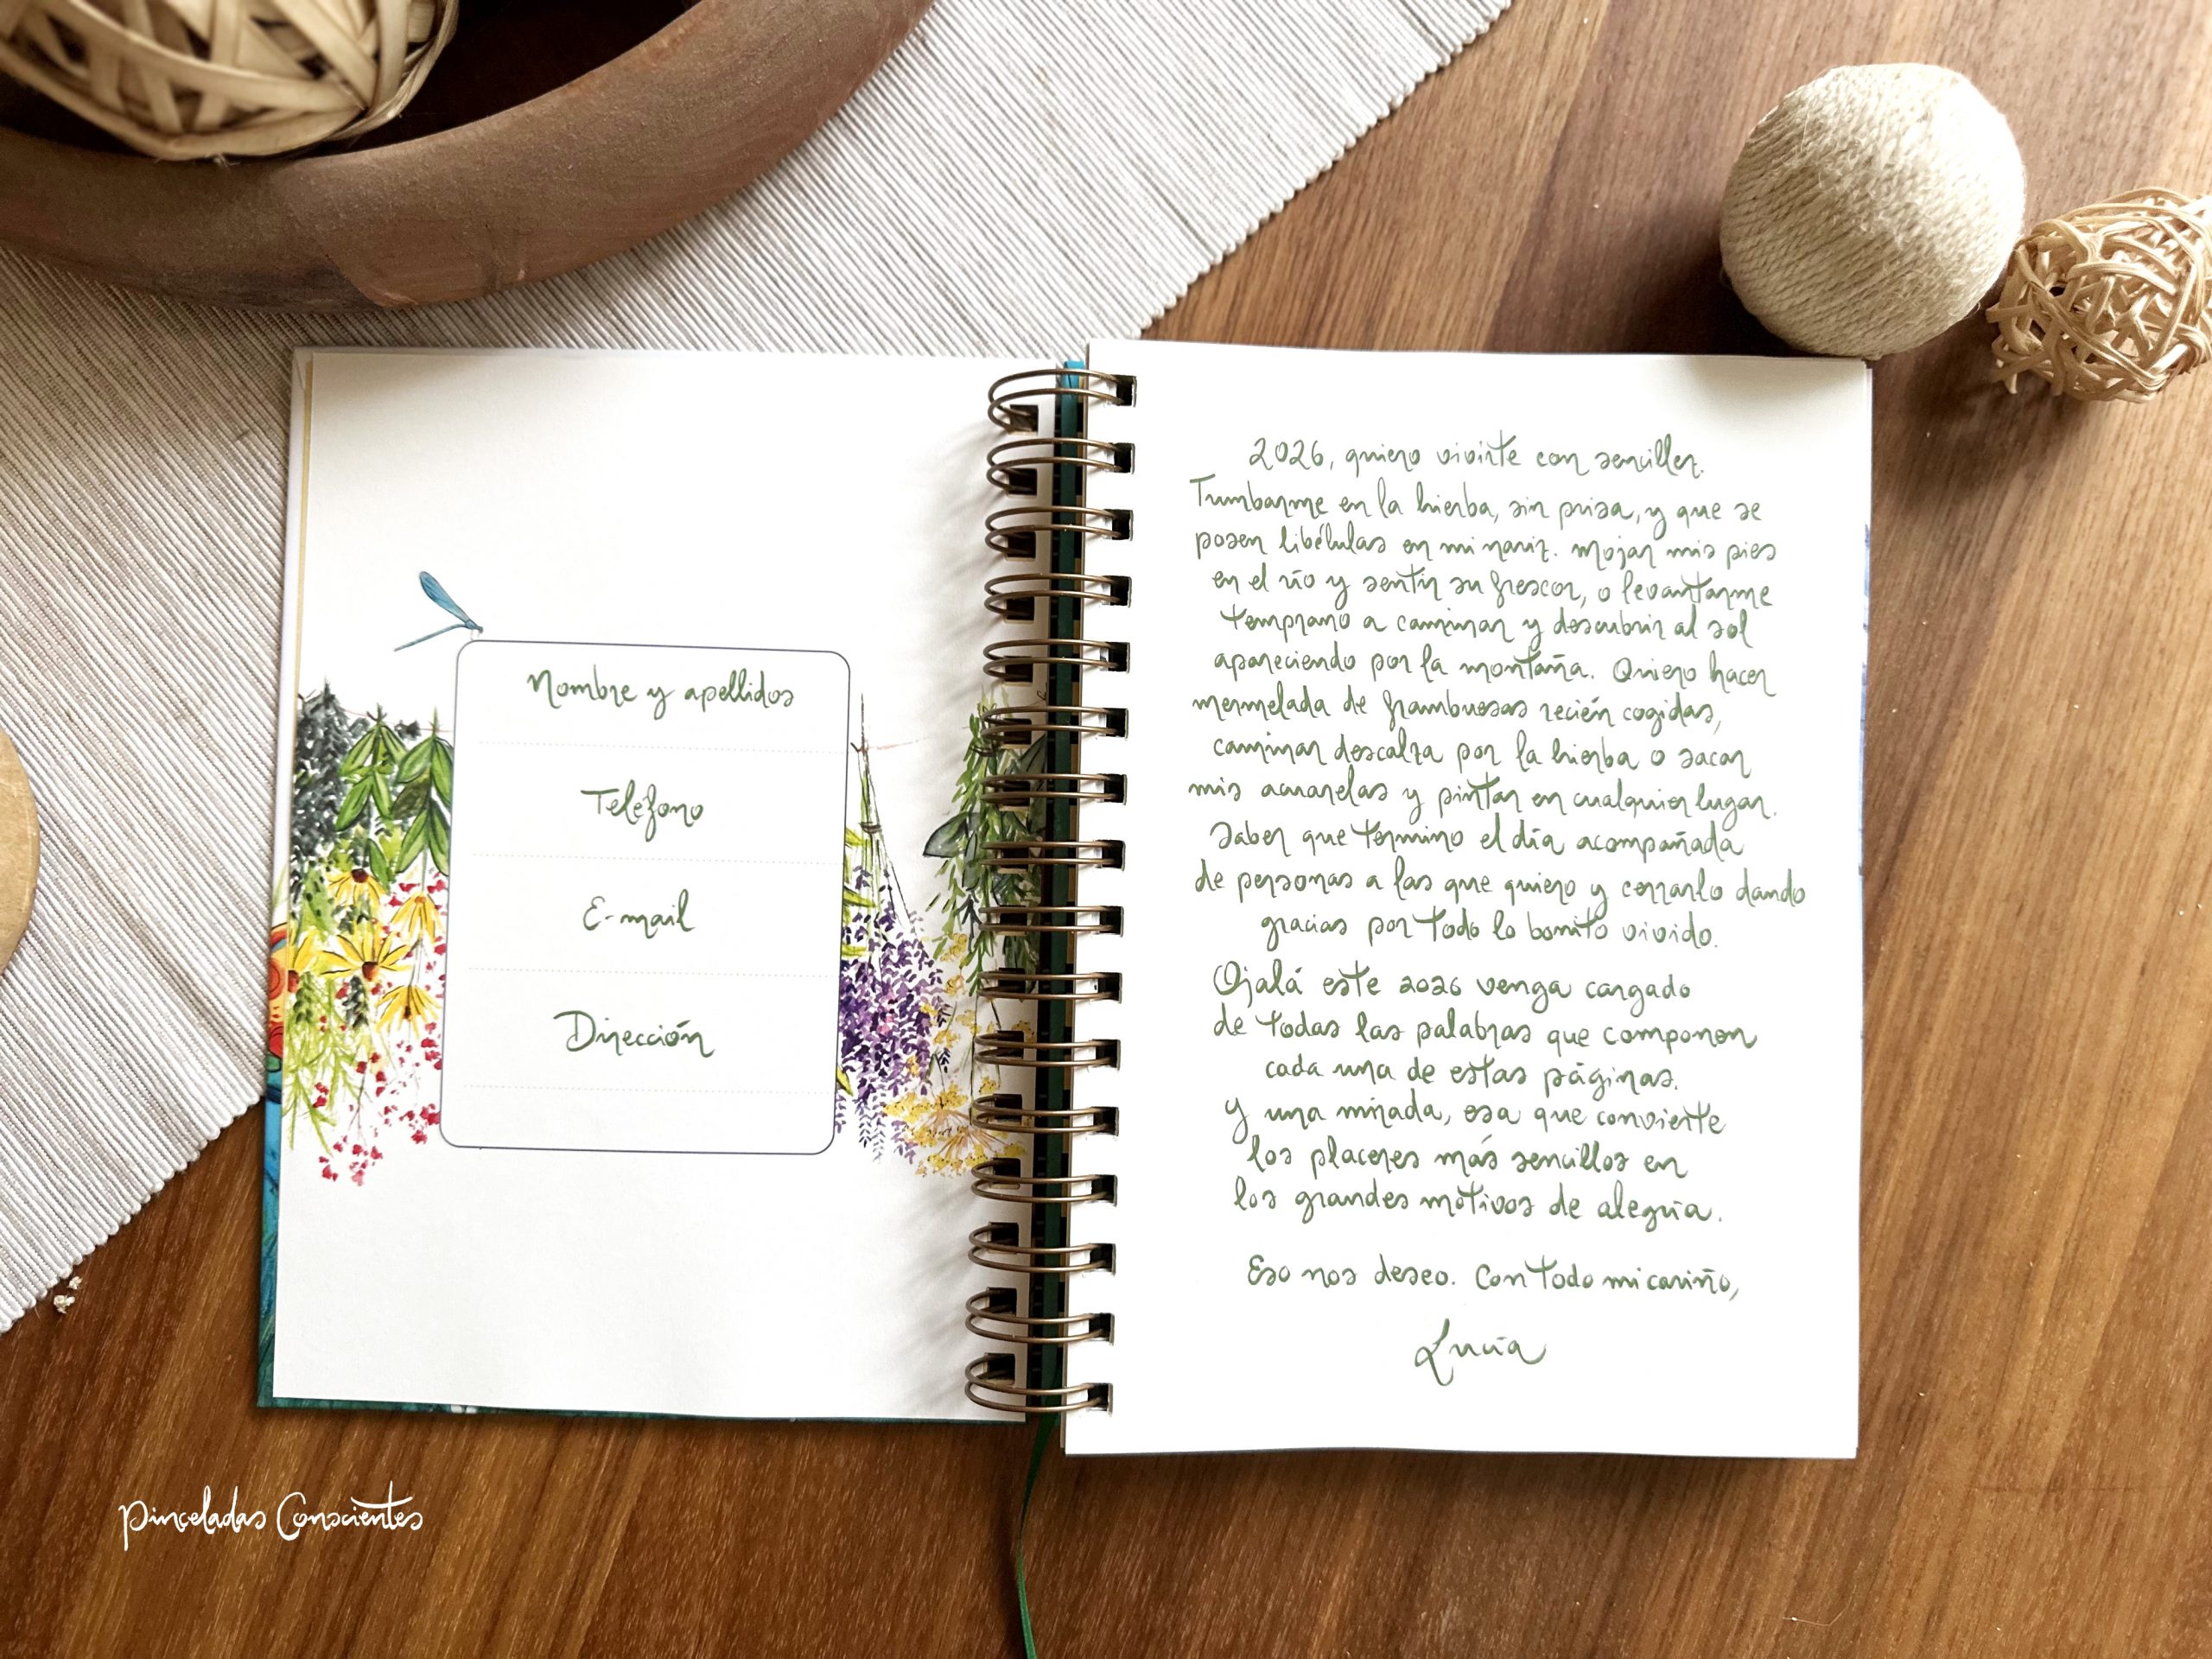 Nombre y apellidos
Teléfono
E-mail
Dirección
2026, quiero vivirte con sencillez.
Tumbarme en la hierba, sin prisa, y que se
posen libélulas en mi nariz. Mojar mis pies
en el río y sentir su frescor, o levantarme
temprano a caminar y descubrir al sol
apareciendo por la montaña. Quiero hacer
mermelada de frambuesas recién cogidas,
caminar descalza por la hierba o sacar
mis acuarelas y pintar en cualquier lugar.
Saber que termino el día acompañada
de personas a las que quiero y cerrarlo dando
gracias por todo lo bonito vivido.
Ojalá este 2026 venga cargado
de todas las palabras que componen
cada una de estas páginas.
Y una mirada, esa que convierte
los placeres más sencillos en
los grandes motivos de alegría.
Eso nos deseo. Con todo mi cariño,
Lucía
Pinceladas Conscientes